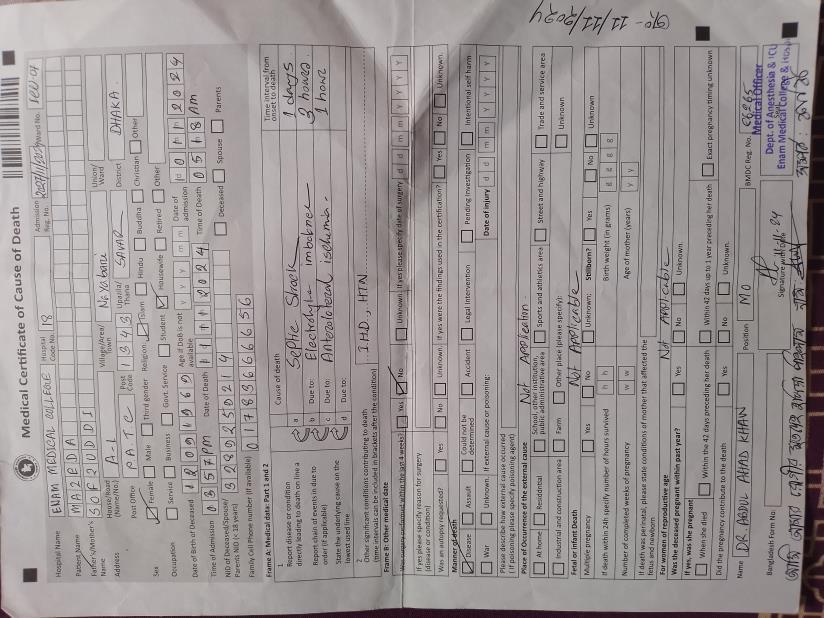 Medical Certificate of Cause of Death
Hospital Name ENAM MEDICAL COLLEGE Hospital Code No. 18 Admission Reg. No. Ward No. ICU 07
Patient Name MAZEDA
Father's/Mother's Name SOFURUDDI
Address House/Road (Name/No.) A-1 Village/Area/Town Nayabari Union/Ward
Post Office P.A.T.C Post Code 1343 Upazila/Thana SAVAR District DHAKA
Sex Female Male Third gender Religion Islam Hindu Buddha Christian Other
Occupation Service Business Govt. Service Student Housewife Retired Other
Date of Birth of Deceased 12091969 Age if DoB is not available y y y m m Date of admission 01112024
Time of Admission 0357PM Date of Death 11112024 Time of Death 0518 AM
NID of Deceased/Spouse/Parents NID (< 18 years) 3289250214 Deceased Spouse Parents
Family Cell Phone number (if available) 01783666656
Frame A: Medical data: Part 1 and 2
1 Cause of death Time interval from onset to death
Report disease or condition directly leading to death on line a a Septic Shock 1 days
Report chain of events in due to order (if applicable) b Due to: Electrolyte imbalance 3 hours
State the underlying cause on the lowest used line c Due to: Anterolateral ischemia 1 hour
d Due to:
2 Other significant conditions contributing to death (time intervals can be included in brackets after the condition) IHD, HTN
Frame B: Other medical data
Was surgery performed within the last 4 weeks? Yes No Unknown. If yes please specify date of surgery d d m m y y y y
If yes please specify reason for surgery (disease or condition)
Was an autopsy requested? Yes No Unknown. If yes were the findings used in the certification? Yes No Unknown
Manner of death
Disease Assault Could not be determined Accident Legal Intervention Pending Investigation Intentional self harm
War Unknown. If external cause or poisoning: Date of injury d d m m y y y y
Please describe how external cause occurred (If poisoning please specify poisoning agent)
Place of Occurrence of the external cause Not Application
At home Residential School other institution, public administrative area Sports and athletics area Street and highway Trade and service area
Industrial and construction area Farm Other place (please specify): Unknown
Fetal or infant Death Not Applicable
Multiple pregnancy Yes No Unknown: Stillborn? Yes No Unknown
If death within 24h specify number of hours survived h h Birth weight (in grams) g g g g
Number of completed weeks of pregnancy w w Age of mother (years) y y
If death was perinatal, please state conditions of mother that affected the fetus and newborn
For women of reproductive age Not Applicable
Was the deceased pregnant within past year? Yes No Unknown.
If yes, was she pregnant
When she died Within the 42 days preceding her death Within 42 days up to 1 year preceding her death Exact pregnancy timing unknown
Did the pregnancy contribute to the death Yes No Unknown.
Name DR ABDUL AHAD KHAN Position MO BMDC Reg. No.
Bangladesh Form No. Signature with date
Medical Officer
Dept. of Anesthesia & ICU
Enam Medical College & Hospital
11/11/2024